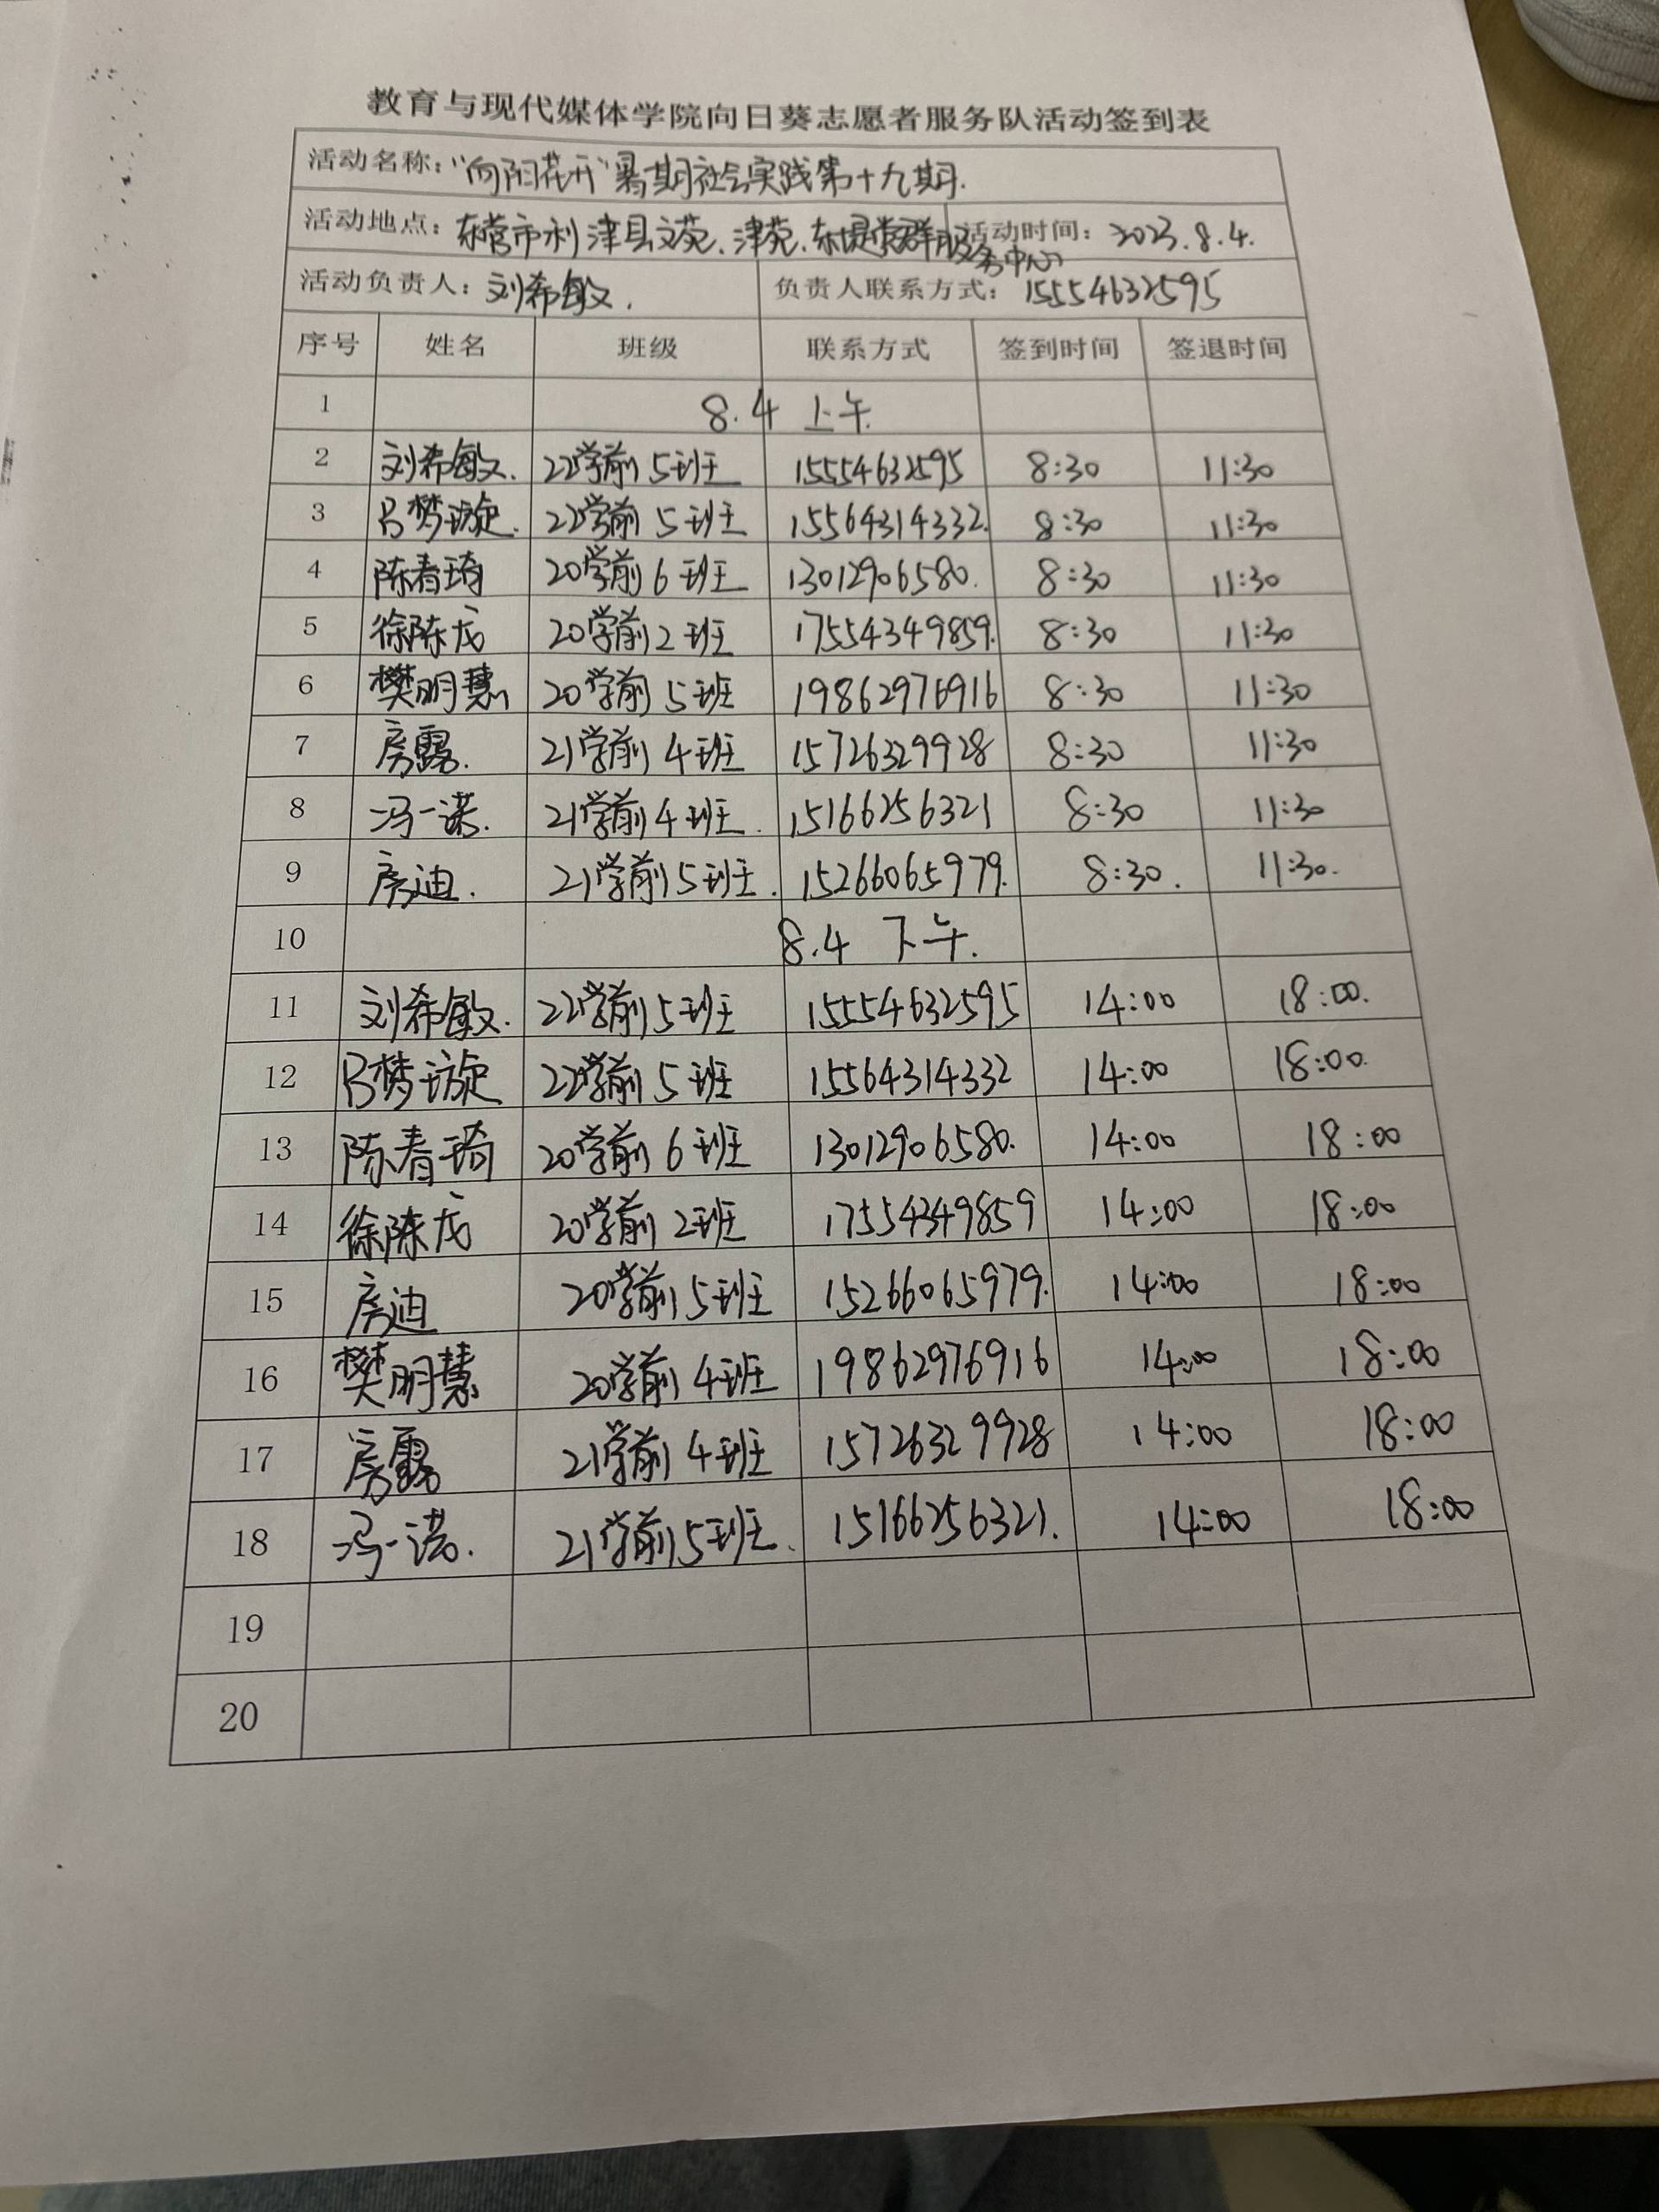 教育与现代媒体学院向日葵志愿者服务队活动签到表
活动名称:“向阳花开”暑期社会实践第十九期.
活动地点:东营市利津县文苑、津苑、东堤党群服务中心 活动时间:2023.8.4.
活动负责人:刘希敏. 负责人联系方式:15554632595
序号 姓名 班级 联系方式 签到时间 签退时间
1 8.4 上午.
2 刘希敏. 22学前5班 15554632595 8:30 11:30
3 吕梦璇. 22学前5班 15564314332. 8:30 11:30
4 陈春琦 20学前6班 13012906580. 8:30 11:30
5 徐陈龙 20学前2班 17554349859. 8:30 11:30
6 樊明慧 20学前5班 19862976916 8:30 11:30
7 房露. 21学前4班 15726329928 8:30 11:30
8 冯一诺. 21学前4班. 15166256321 8:30 11:30
9 房迪. 21学前5班. 15266065979. 8:30. 11:30.
10 8.4 下午.
11 刘希敏. 22学前5班 15554632595 14:00 18:00.
12 吕梦璇 22学前5班 15564314332 14:00 18:00.
13 陈春琦 20学前6班 13012906580. 14:00 18:00
14 徐陈龙 20学前2班 17554349859 14:00 18:00
15 房迪 20学前5班 15266065979. 14:00 18:00
16 樊明慧 20学前4班 19862976916 14:00 18:00
17 房露 21学前4班 15726329928 14:00 18:00
18 冯一诺. 21学前5班. 15166256321. 14:00 18:00
19
20